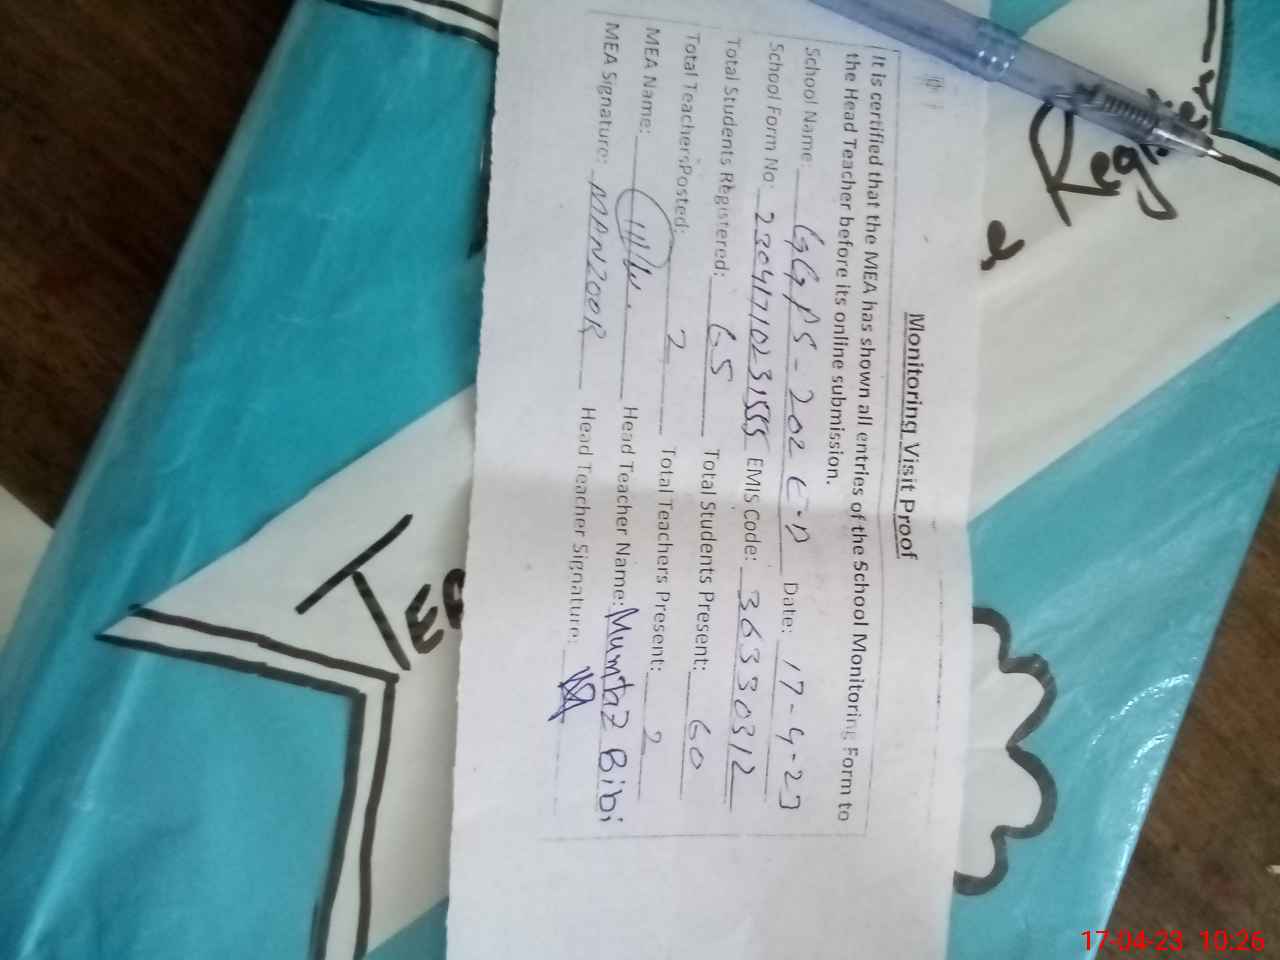 Monitoring Visit Proof
It is certified that the MEA has shown all entries of the School Monitoring Form to
the Head Teacher before its online submission.
School Name: GGPS-202 E-B Date: 17-4-23
School Form No: EMIS Code: 36330312
Total Students Registered: 65 Total Students Present: 60
Total Teachers Posted: 2 Total Teachers Present: 2
MEA Name: Head Teacher Name: Mumtaz Bibi
MEA Signature: MANZOOR Head Teacher Signature:
Register
TEA
17-04-23 10:26